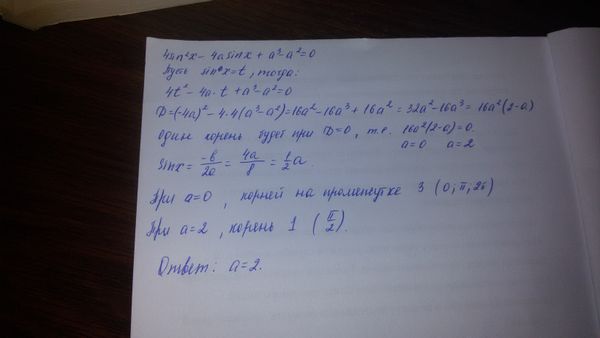 4sin²x - 4a sinx + a³-a²=0
Пусть sin x = t, тогда:
4t² - 4a·t + a³-a²=0
D=(-4a)² - 4·4(a³-a²)=16a²-16a³+16a²=32a²-16a³=16a²(2-a)
один корень будет при D=0, т.е. 16a²(2-a)=0
a=0 a=2
Sinx = -b/2a = 4a/8 = 1/2 a.
При a=0, корней на промежутке 3 (0; π; 2π)
При a=2, корень 1 (π/2).
Ответ: a=2.